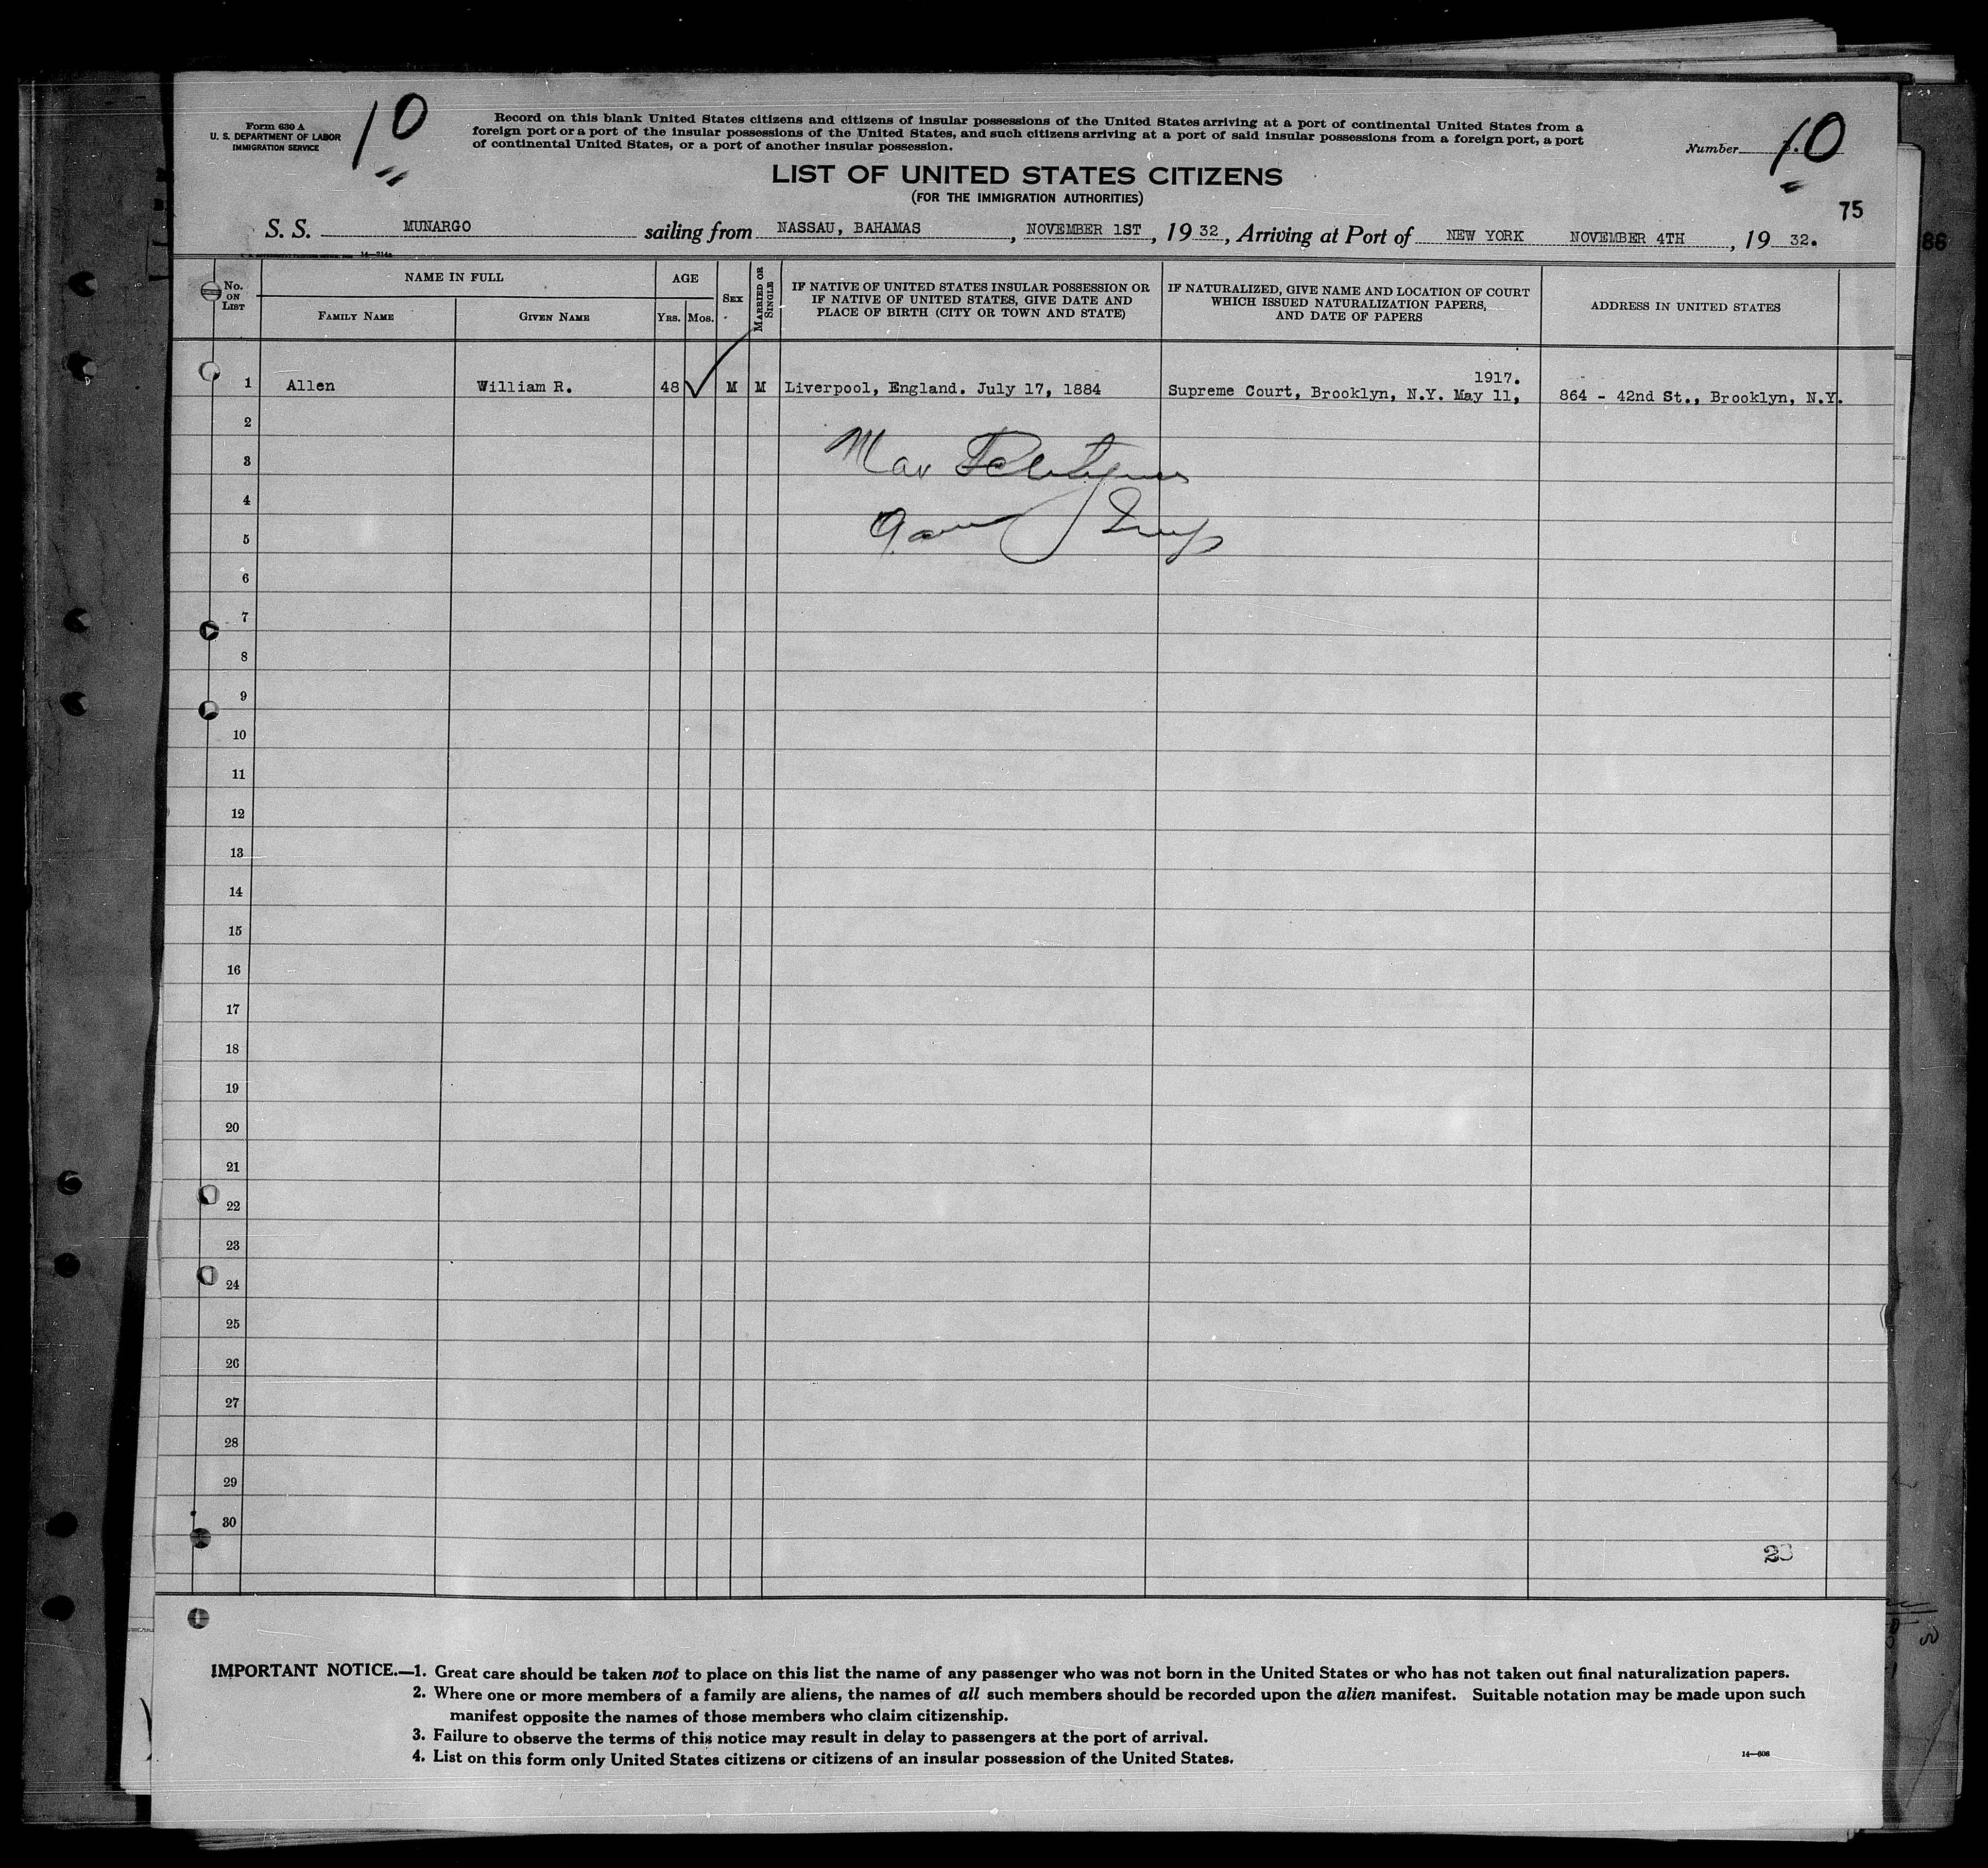 Form 630 A
U. S. DEPARTMENT OF LABOR
IMMIGRATION SERVICE
10
Record on this blank United States citizens and citizens of insular possessions of the United States arriving at a port of continental United States from a
foreign port or a port of the insular possessions of the United States, and such citizens arriving at a port of said insular possessions from a foreign port, a port
of continental United States, or a port of another insular possession.
Number 10
LIST OF UNITED STATES CITIZENS
(FOR THE IMMIGRATION AUTHORITIES)
75
86
S. S. MUNARGO sailing from NASSAU, BAHAMAS, NOVEMBER 1ST, 19 32, Arriving at Port of NEW YORK NOVEMBER 4TH, 19 32.
No. ON LIST
NAME IN FULL
FAMILY NAME
GIVEN NAME
AGE
YRS. MOS.
SEX
MARRIED OR SINGLE
IF NATIVE OF UNITED STATES INSULAR POSSESSION OR
IF NATIVE OF UNITED STATES, GIVE DATE AND
PLACE OF BIRTH (CITY OR TOWN AND STATE)
IF NATURALIZED, GIVE NAME AND LOCATION OF COURT
WHICH ISSUED NATURALIZATION PAPERS,
AND DATE OF PAPERS
ADDRESS IN UNITED STATES
1 Allen William R. 48 M M Liverpool, England. July 17, 1884 Supreme Court, Brooklyn, N.Y. May 11, 1917. 864 - 42nd St., Brooklyn, N.Y.
2
3
4
5
6
7
8
9
10
11
12
13
14
15
16
17
18
19
20
21
22
23
24
25
26
27
28
29
30
IMPORTANT NOTICE.—1. Great care should be taken not to place on this list the name of any passenger who was not born in the United States or who has not taken out final naturalization papers.
2. Where one or more members of a family are aliens, the names of all such members should be recorded upon the alien manifest. Suitable notation may be made upon such
manifest opposite the names of those members who claim citizenship.
3. Failure to observe the terms of this notice may result in delay to passengers at the port of arrival.
4. List on this form only United States citizens or citizens of an insular possession of the United States.
14—608